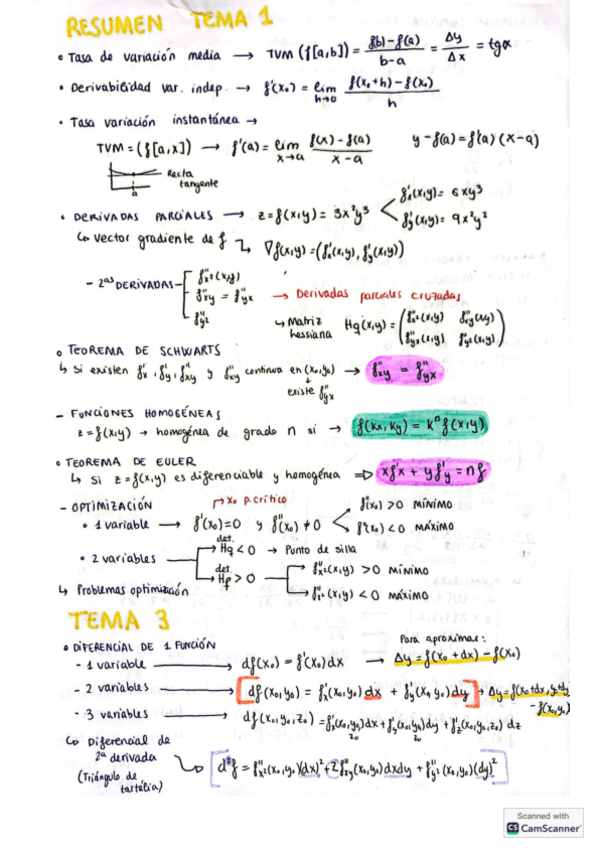 RESUMEN TEMA 1
• Tasa de variación media → TVM (f[a,b]) = f(b)-f(a) / b-a = Δy / Δx = tgα
• Derivabilidad var. indep. → f'(x₀) = lim h→0 f(x₀+h)-f(x₀) / h
• Tasa variación instantánea →
TVM = (f[a,x]) → f'(a) = lim x→a f(x)-f(a) / x-a y-f(a) = f'(a) (x-a)
Recta tangente
a
• DERIVADAS PARCIALES → z=f(x,y) = 3x²y³ f'x(x,y) = 6xy³
f'y(x,y) = 9x²y²
↳ Vector gradiente de f ↴ ∇f(x,y) = (f'x(x,y), f'y(x,y))
- 2ªˢ DERIVADAS f''x²(x,y)
f''xy = f''yx → Derivadas parciales cruzadas
f''y²
↳ Matriz hessiana Hf(x,y) = (f''x²(x,y) f''xy(x,y)
f''yx(x,y) f''y²(x,y))
• TEOREMA DE SCHWARTS
↳ Si existen f'x, f'y, f''xy y f''xy continua en (x₀,y₀) → f''xy = f''yx
↓
existe f''yx
- FUNCIONES HOMOGÉNEAS
z=f(x,y) → homogénea de grado n si → f(kx, ky) = kⁿf(x,y)
• TEOREMA DE EULER
↳ si z=f(x,y) es diferenciable y homogénea ⇒ xf'x + yf'y = nf
- OPTIMIZACIÓN → x₀ p.crítico
• 1 variable → f'(x₀)=0 y f''(x₀) ≠ 0 f''(x₀) > 0 MÍNIMO
f''(x₀) < 0 MÁXIMO
• 2 variables det. Hf < 0 → Punto de silla
det. Hf > 0 f''x²(x,y) > 0 MÍNIMO
f''x²(x,y) < 0 MÁXIMO
↳ Problemas optimización
TEMA 3
• DIFERENCIAL DE 1 FUNCIÓN Para aproximar:
- 1 variable → df(x₀) = f'(x₀)dx → Δy = f(x₀+dx) - f(x₀)
- 2 variables → [df(x₀,y₀) = f'x(x₀,y₀) dx + f'y(x₀,y₀)dy] → Δy = f(x₀+dx, y₀+dy) - f(x₀,y₀)
- 3 variables → df(x₀,y₀,z₀) = f'x(x₀,y₀,z₀)dx + f'y(x₀,y₀,z₀)dy + f'z(x₀,y₀,z₀) dz
↳ Diferencial de 2ª derivada
(Triángulo de tartália) → [d²f = f''x²(x₀,y₀)(dx)² + 2f''xy(x₀,y₀)dxdy + f''y²(x₀,y₀)(dy)²]
Scanned with
CS CamScanner